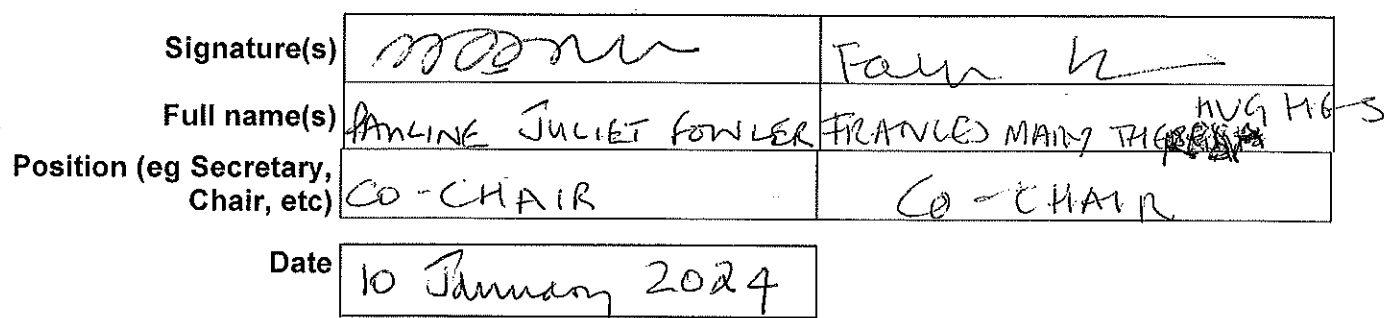 Signature(s)
Full name(s) PAULINE JULIET FOWLER FRANCES MARY HUGHES
Position (eg Secretary,
Chair, etc) CO-CHAIR CO-CHAIR
Date 10 January 2024